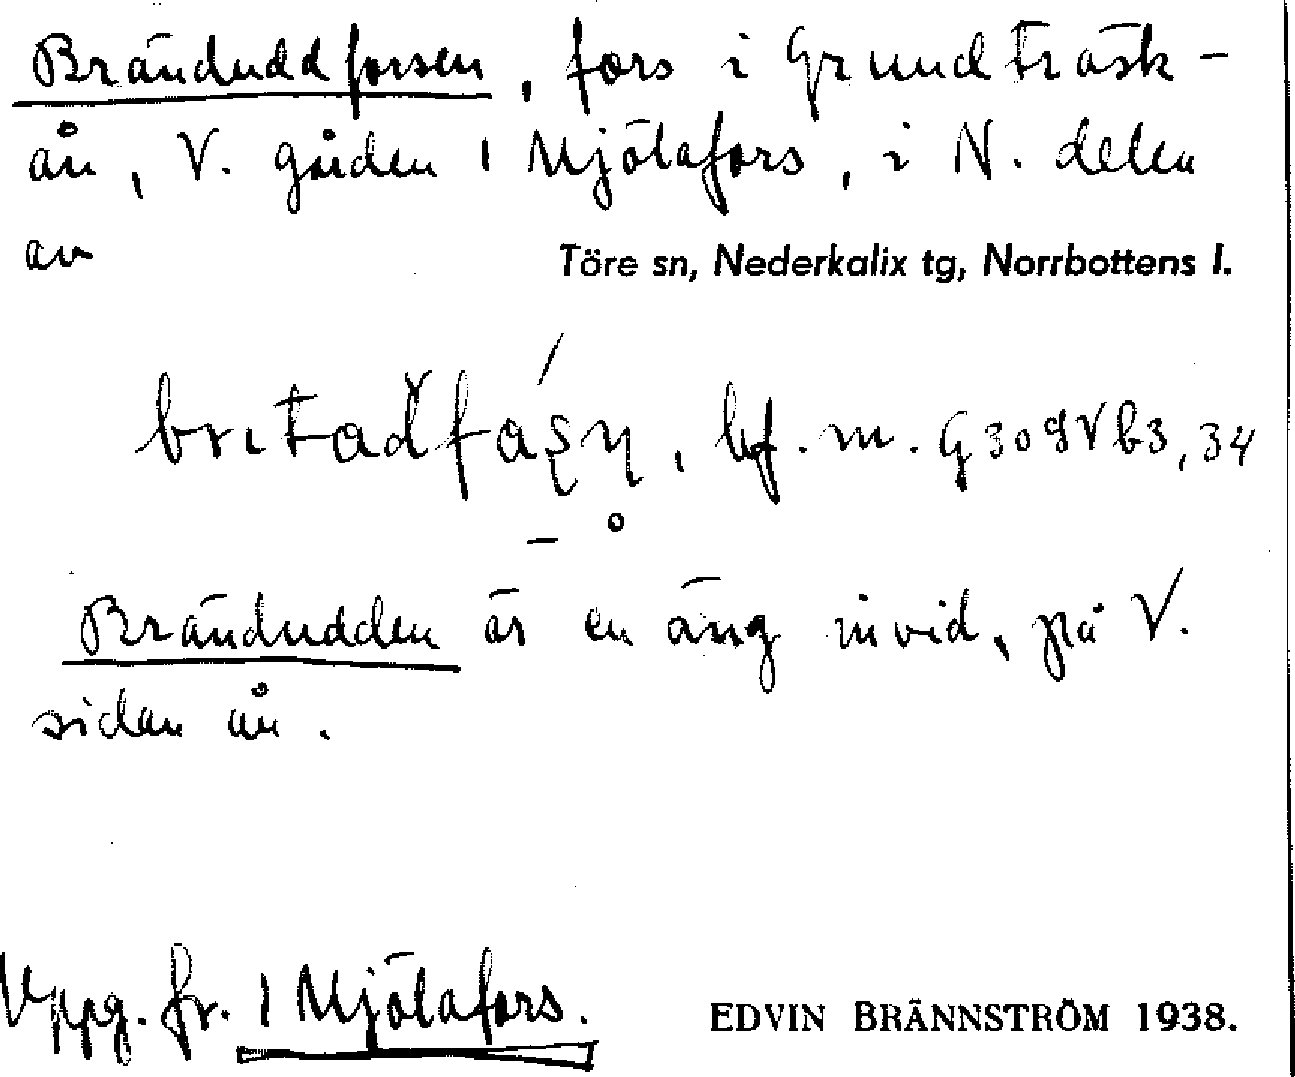 Bränduddforsen, fors i Grundträsk-
ån, V. gården 1 Mjölafors, i N. delen
av Töre sn, Nederkalix tg, Norrbottens l.
bf. m.
Brändudden är en äng invid, på V.
sidan ån.
Uppg. fr. 1 Mjölafors. EDVIN BRÄNNSTRÖM 1938.